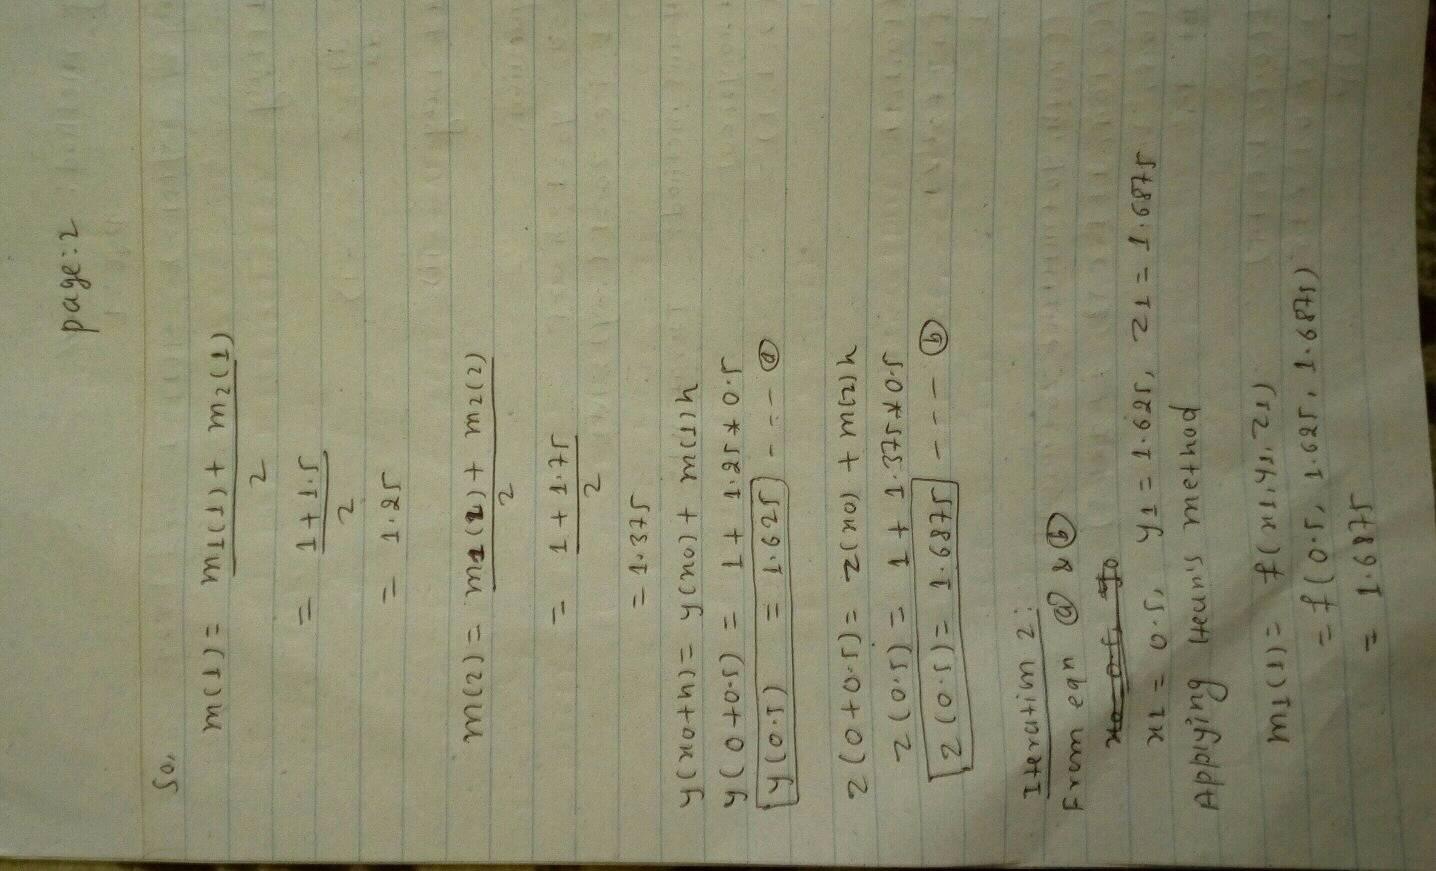 page:2
So,
m(1) = m1(1) + m2(1)
2
= 1 + 1.5
2
= 1.25
m(2) = m1(2) + m2(2)
2
= 1 + 1.75
2
= 1.375
y(x0+h) = y(x0) + m(1)h
y(0+0.5) = 1 + 1.25 * 0.5
y(0.5) = 1.625 ---- (a)
z(0+0.5) = z(x0) + m(2)h
z(0.5) = 1 + 1.375 * 0.5
z(0.5) = 1.6875 ---- (b)
Iteration 2:
From eqn (a) & (b)
x1 = 0.5, y1 = 1.625, z1 = 1.6875
Applying Heun's method
m1(1) = f(x1, y1, z1)
= f(0.5, 1.625, 1.6875)
= 1.6875